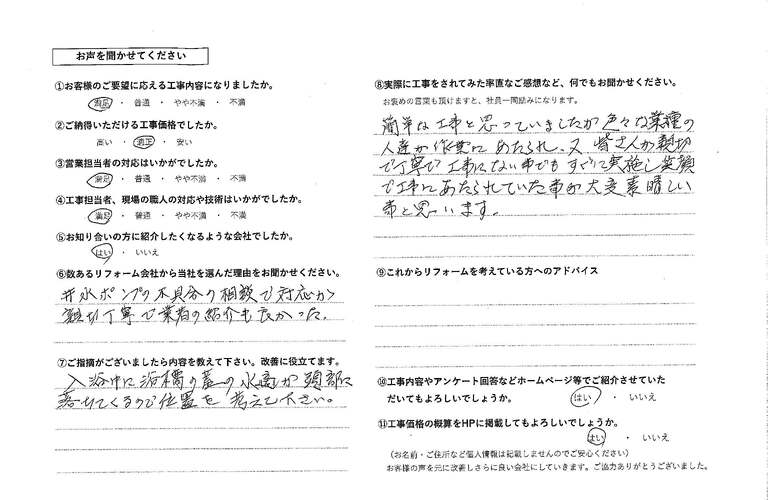 お声を聞かせてください
①お客様のご要望に応える工事内容になりましたか。
満足 ・ 普通 ・ やや不満 ・ 不満
②ご納得いただける工事価格でしたか。
高い ・ 適正 ・ 安い
③営業担当者の対応はいかがでしたか。
満足 ・ 普通 ・ やや不満 ・ 不満
④工事担当者、現場の職人の対応や技術はいかがでしたか。
満足 ・ 普通 ・ やや不満 ・ 不満
⑤お知り合いの方に紹介したくなるような会社でしたか。
はい ・ いいえ
⑥数あるリフォーム会社から当社を選んだ理由をお聞かせください。
井水ポンプの不具合の相談で対応が
親切丁寧で業者の紹介も良かった。
⑦ご指摘がございましたら内容を教えて下さい。改善に役立てます。
入浴中に浴槽の蓋の水滴が頭部に
落ちてくるので位置を考えて下さい。
⑧実際に工事をされてみた率直なご感想など、何でもお聞かせください。
お褒めの言葉も頂けますと、社員一同励みになります。
簡単な工事と思っていましたが色々な業種の
人達が作業にあたられ、又、皆さんが親切
で丁寧で工事にない事でもすぐに実施し笑顔
で工事にあたられていた事が大変素晴しい
事と思います。
⑨これからリフォームを考えている方へのアドバイス
⑩工事内容やアンケート回答などホームページ等でご紹介させていた
だいてもよろしいでしょうか。 はい ・ いいえ
⑪工事価格の概算をHPに掲載してもよろしいでしょうか。
はい ・ いいえ
(お名前・ご住所など個人情報は記載しませんのでご安心ください)
お客様の声を元に改善しさらに良い会社にしていきます。ご協力ありがとうございました。